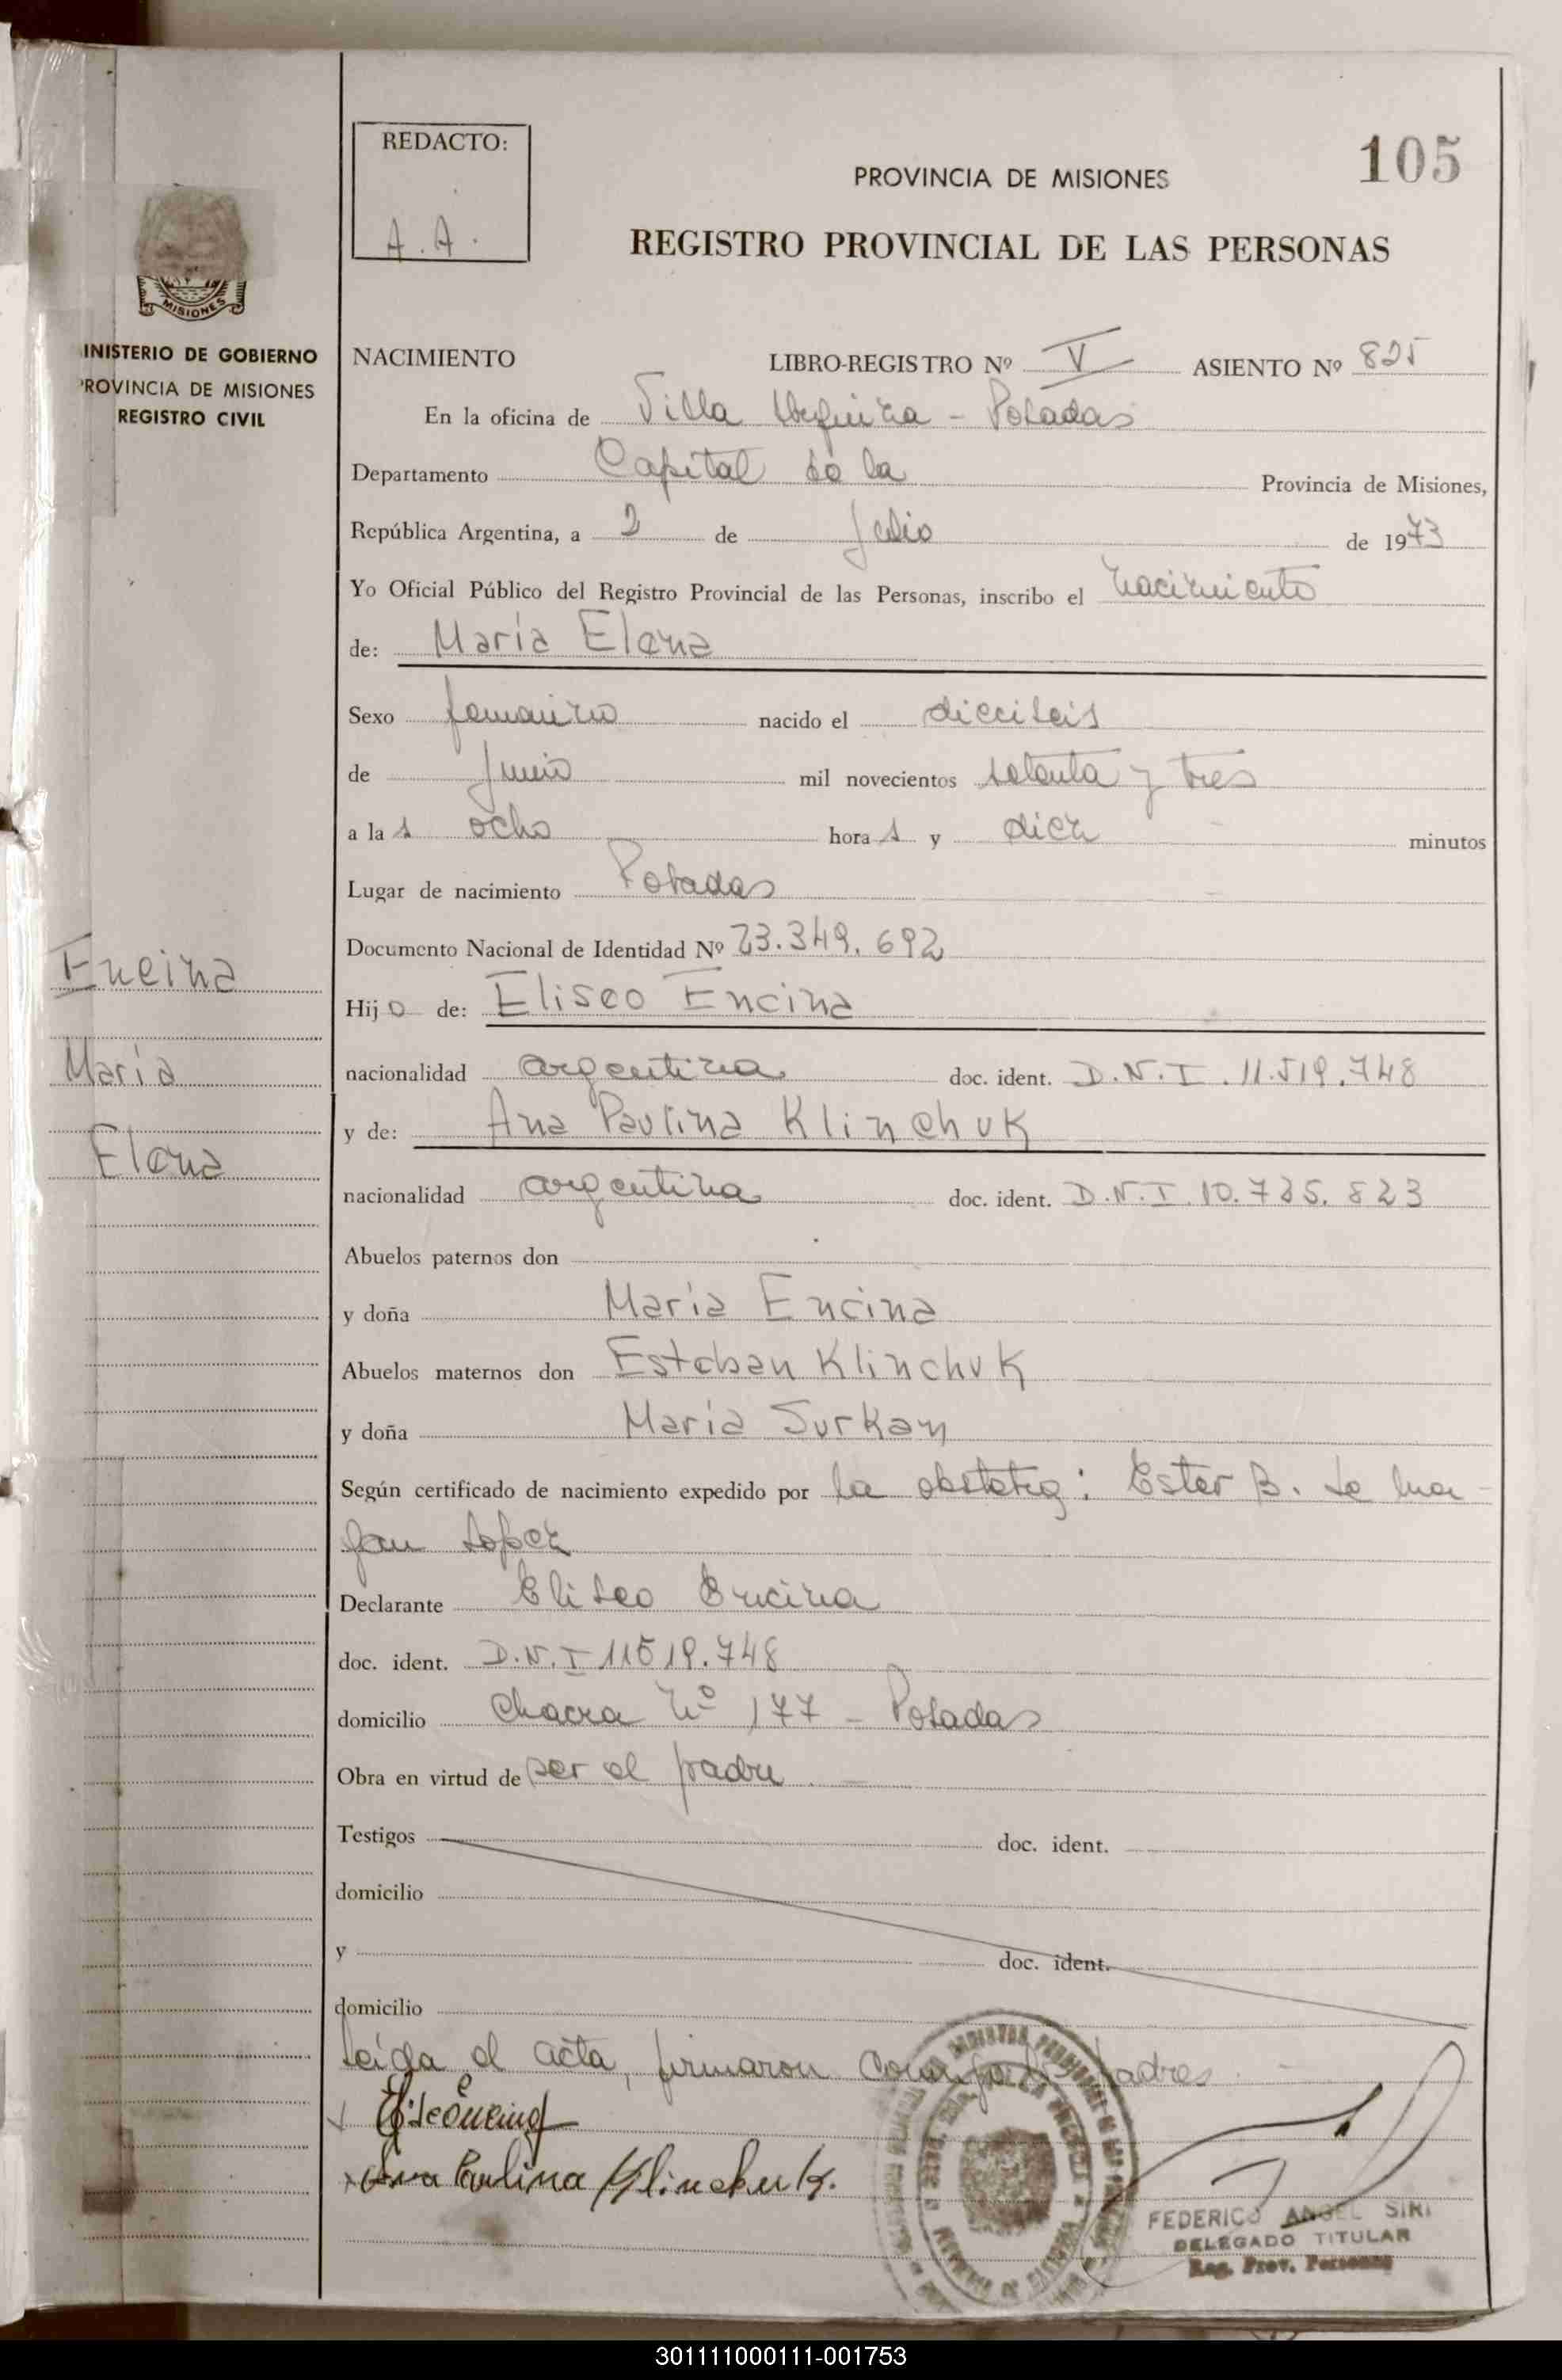 REDACTO:
A. A.
105
PROVINCIA DE MISIONES
REGISTRO PROVINCIAL DE LAS PERSONAS
MISIONES
INISTERIO DE GOBIERNO
PROVINCIA DE MISIONES
REGISTRO CIVIL
NACIMIENTO LIBRO-REGISTRO Nº V ASIENTO Nº 825
En la oficina de Villa Urquiza - Posadas
Departamento Capital de la Provincia de Misiones,
República Argentina, a 2 de Julio de 1973
Yo Oficial Público del Registro Provincial de las Personas, inscribo el nacimiento
de: María Elena
Sexo femenino nacido el dieciseis
de Junio mil novecientos setenta y tres
a la s ocho hora s y diez minutos
Lugar de nacimiento Posadas
Documento Nacional de Identidad Nº 23.349.692
Encina
María
Elena
Hij a de: Eliseo Encina
nacionalidad argentina doc. ident. D.N.I. 11.519.748
y de: Ana Paulina Klinchuk
nacionalidad argentina doc. ident. D.N.I. 10.735.823
Abuelos paternos don
y doña María Encina
Abuelos maternos don Esteban Klinchuk
y doña María Surkan
Según certificado de nacimiento expedido por la obstetra: Ester B. de
Lopez
Declarante Eliseo Encina
doc. ident. D.N.I 11519.748
domicilio Chacra Nº 177 - Posadas
Obra en virtud de ser el padre
Testigos doc. ident.
domicilio
y doc. ident.
domicilio
Leida el acta, firmaron conmigo los padres
Eliseo Encina
Ana Paulina Klinchuk.
FEDERICO ANGEL SIRI
DELEGADO TITULAR
Reg. Prov. Personas
301111000111-001753